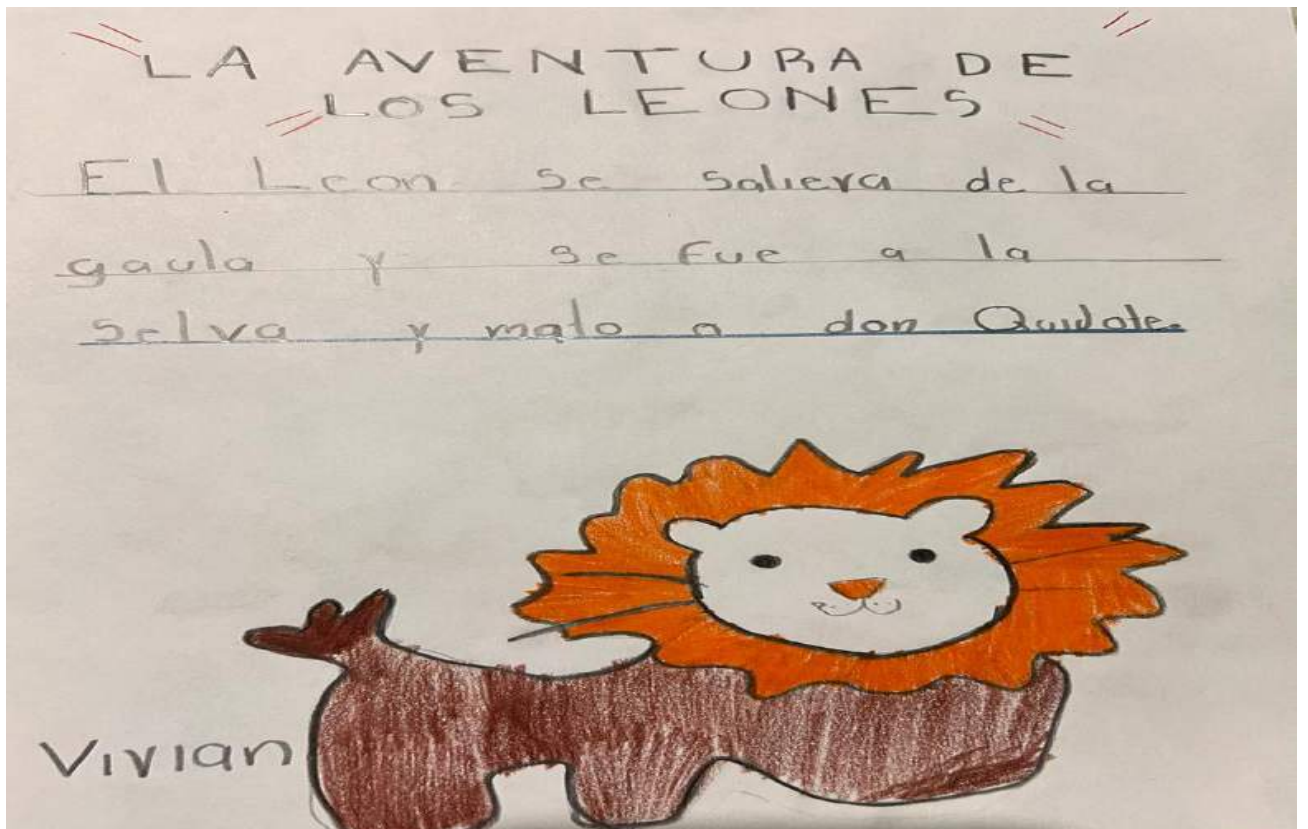 LA AVENTURA DE
LOS LEONES
El Leon se saliera de la
gaula y se fue a la
selva y mato a don Quidote.
Vivian